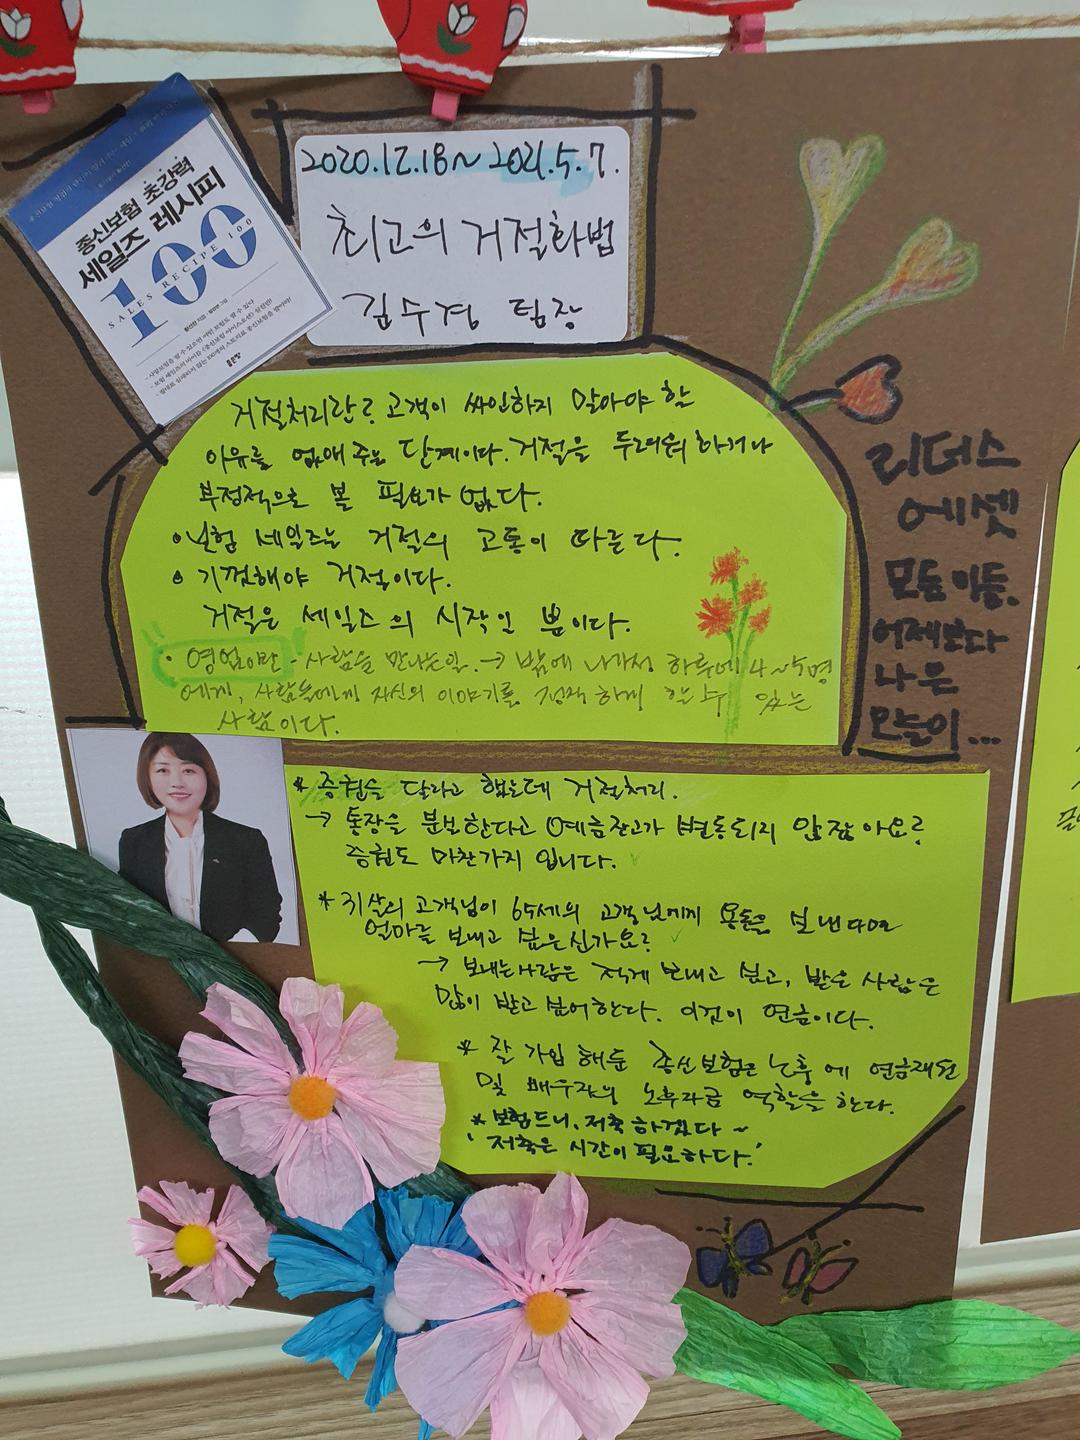 종신보험 초강력
세일즈 레시피
100
SALES RECIPE 100
2020.12.18~2021.5.7.
최고의 거절화법
김수경 팀장
거절처리란? 고객이 싸인하지 말아야 할
이유를 없애 주는 단계이다. 거절을 두려워 하거나
부정적으로 볼 필요가 없다.
• 보험 세일즈는 거절의 고통이 따른다.
• 기껏해야 거절이다.
거절은 세일즈의 시작일 뿐이다.
• 영업이란 - 사람을 만나는일. → 밖에 나가서 하루에 4~5명
에게, 사람들에게 자신의 이야기를 정직하게 할 수 있는
사람이다.
리더스
에셋
모듬이들.
어제보다
나은
오늘이...
* 증권을 달라고 했는데 거절처리.
→ 통장을 분보한다고 예금잔고가 변동되지 않잖아요?
증권도 마찬가지 입니다.
* 31살의 고객님이 65세의 고객님에게 용돈을 보낸다면
얼마를 보내고 싶은신가요?
→ 보내는사람은 적게 보내고 싶고, 받은 사람은
많이 받고 싶어한다. 이것이 연금이다.
* 잘 가입해둔 종신보험은 노후에 연금재원
및 배우자의 노후자금 역할을 한다.
* 보험드니, 저축하겠다 ~
'저축은 시간이 필요하다.'